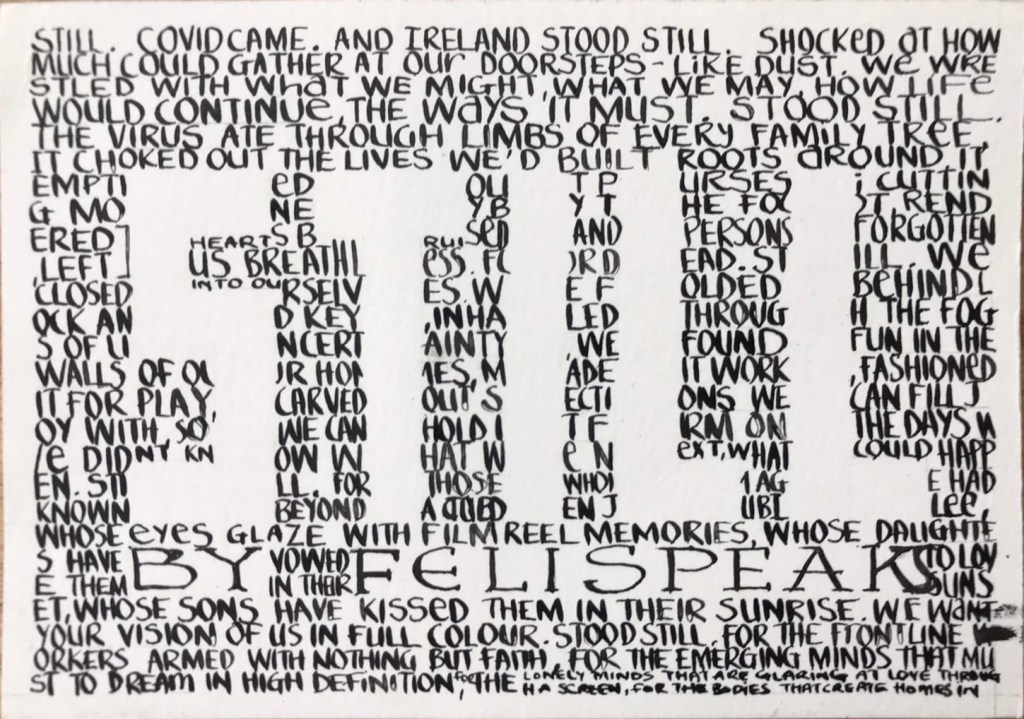 STILL. COVID CAME. AND IRELAND STOOD STILL. SHOCKED aT HOW
MUCH COULD GATHER AT OUr DOORSTEPS - LIKE DUST. We WRE
STLED WITH WHaT WE MIGHT, WHAT WE MAY, HOW LIFe
WOULD CONTINUe, THE WaYS IT MUST. STOOD STILL.
THE VIRUS ATE THROUGH LIMBS OF EVERY FAMILY TREE,
IT CHOKED OUT THE LIVES WE'D BUILT ROOTS aROUND, IT
EMPTI eD OU T P URSES ; CUTTIN
G MO NE YB Y T HE FO ST. REND
ERED] HEARTS B RUISeD AND PERSONS FORGOTTEN
,LEFT] US BREATHL eSS. FL ORD EAD. ST ILL. We
CLOSED INTO OURSELV ES. W E F OLDED BeHINDL
OCK AN D KEY , INHA LED THROUG H THE FOG
S OF U NCERT AINTY , WE FOUND FUN IN THE
WALLS OF OU R HOM ES, M ADE IT WORK , FASHIONeD
IT FOR PLAY, CARVED OUT S ECTI ONS WE CAN FILL J
OY WITH, SO WE CAN HOLD I T F IRM ON THE DAYS W
e DIDNT KN OW W HAT W e N eXT, WHAT COULD HAPP
EN. STI LL. FOR THOSE WHO I MAG E HAD
KNOWN BEYOND A EN J UBI Lee,
WHOSE eyeS GLAZE WITH FILM REEL MEMORIES, WHOSE DAUGHTE
S HAVE VOWED TO LOV
BY FELISPEAKS
E THEM IN THEIR SUNS
ET, WHOSE SONS HAVE KISSeD THEM IN THEIR SUNRISE. WE WaNT
YOUR VISION OF US IN FULL COLOUR. STOOD STILL. FOR THE FRONTLINE W
ORKERS ARMED WITH NOTHING BUT FAITH, FOR THE EMERGING MINDS THAT MU
ST TO DREAM IN HIGH DEFINITION, for THE LONELY MINDS THAT ARE GLARING AT LOVE THROUG
H A SCREEN, FOR THE BODIES THAT CREATE HOMES IN